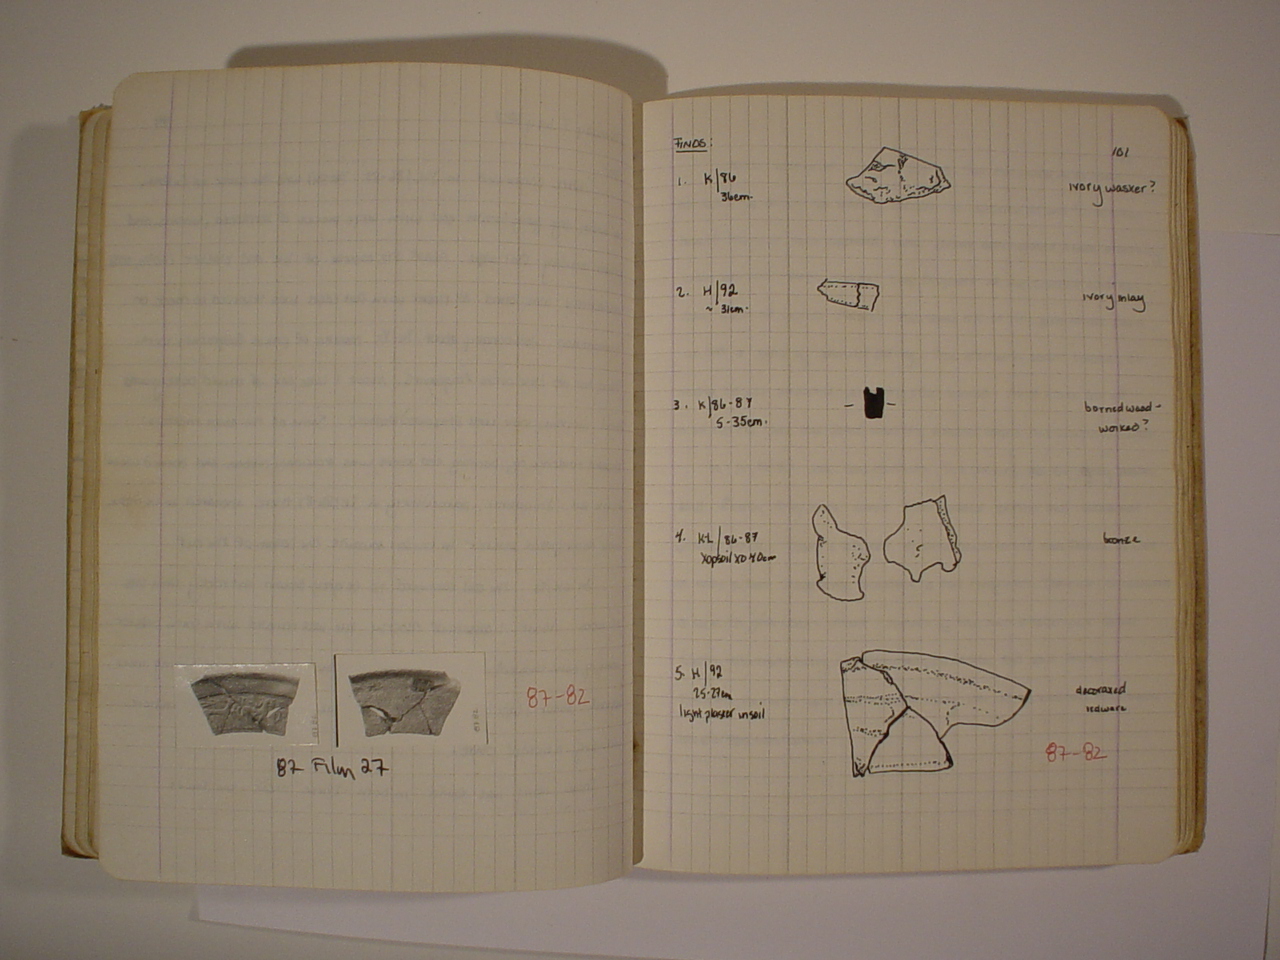 87-82
87 Film 27
FINDS:
101
1. K/86
36cm.
ivory wasxer?
2. H/92
~ 31cm.
ivory inlay
3. K/86-87
5-35cm.
burned wood-
worked?
4. KL/86-87
xopsoil xo 40cm
bronze
5. H/92
25-27cm
light plaster in soil
decoraxed
redware
87-82